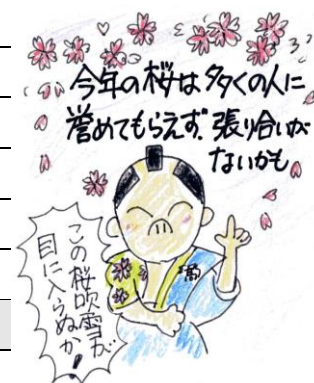 今年の桜は多くの人に
誉めてもらえず、張り合いが
ないかも
この桜吹雪が
目に入らぬか!